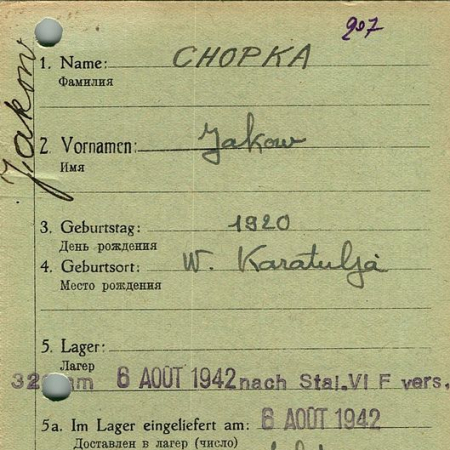 907
1. Name: CHOPKA
Фамилия
Jakow
2. Vornamen: Jakow
Имя
3. Geburtstag: 1920
День рождения
4. Geburtsort: W. Karatuljá
Место рождения
5. Lager:
Лагерь
32 am 6 AOÛT 1942 nach Stal. VI F vers.
5a. Im Lager eingeliefert am: 6 AOÛT 1942
Доставлен в лагерь (число)